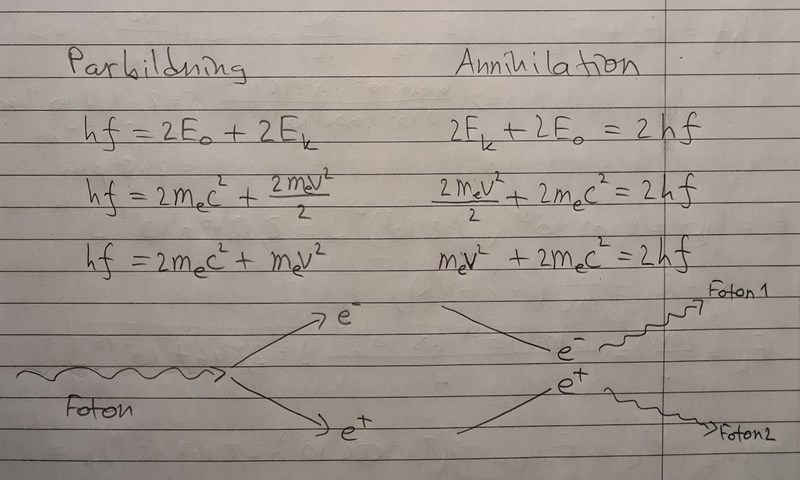 Parbildning
hf = 2E₀ + 2Eₖ
hf = 2mₑc² + 2mₑv²/2
hf = 2mₑc² + mₑv²
Foton
e⁻
e⁺
Annihilation
2Eₖ + 2E₀ = 2hf
2mₑv²/2 + 2mₑc² = 2hf
mₑv² + 2mₑc² = 2hf
e⁻
e⁺
Foton 1
Foton 2